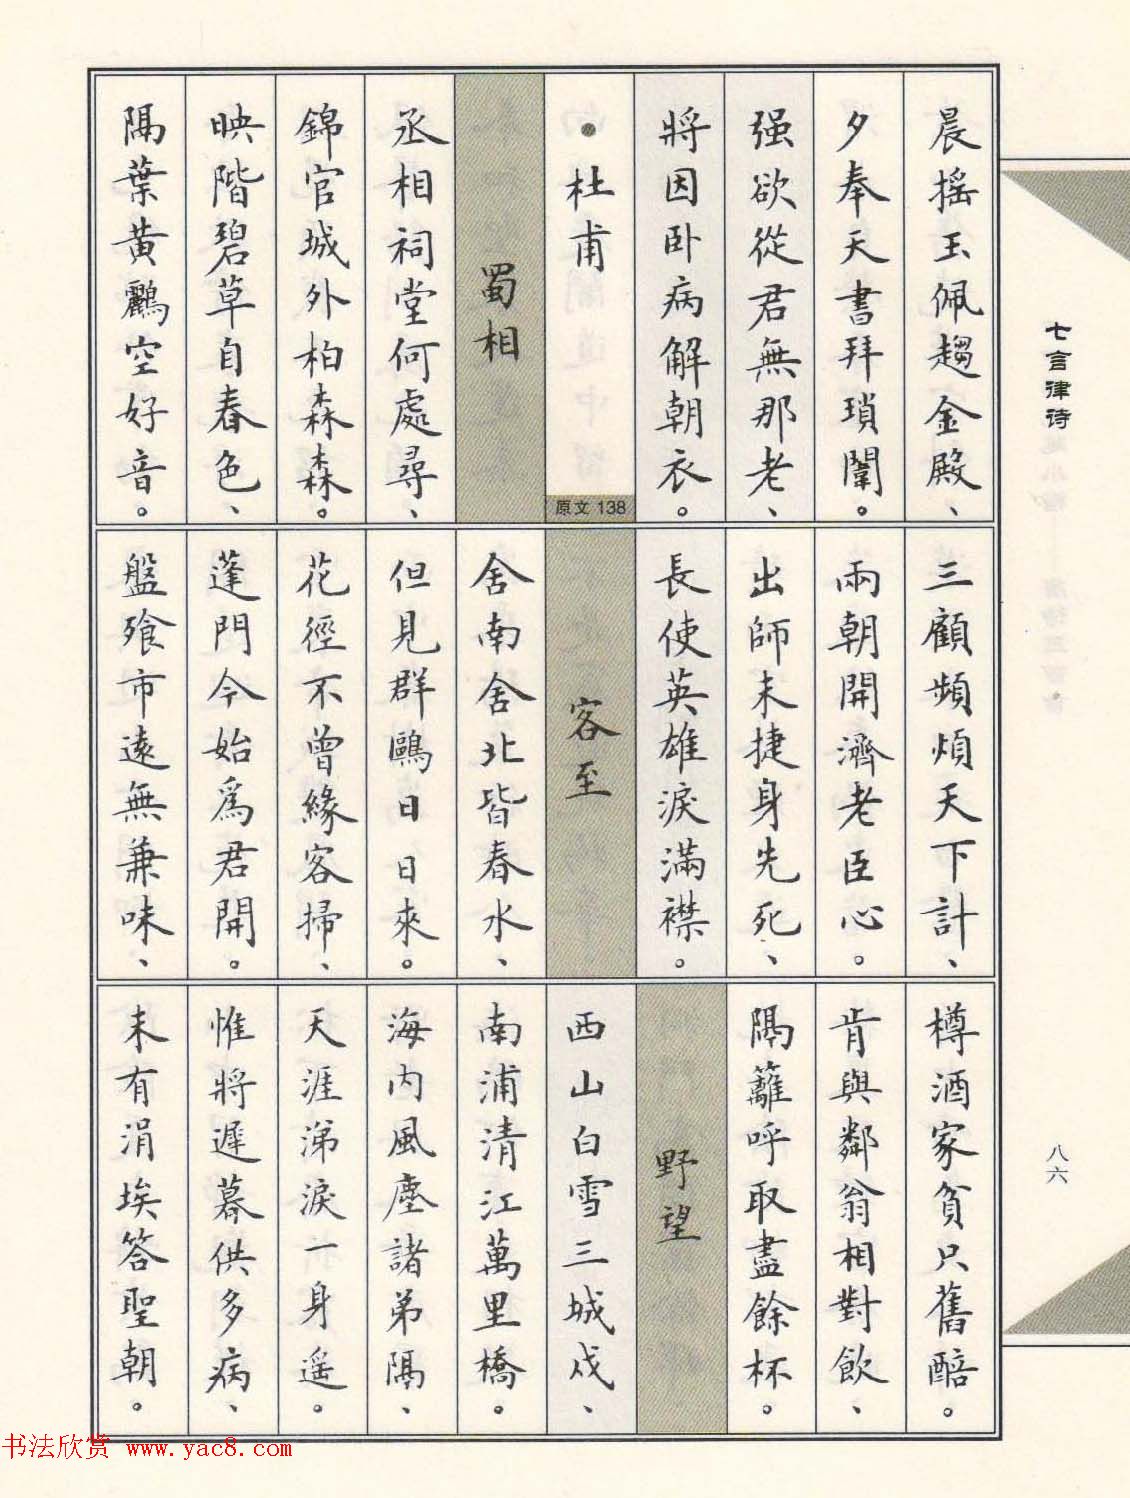 晨摇玉佩趨金殿、
夕奉天書拜瑣闈。
强欲從君無那老、
將因卧病解朝衣。
●杜甫
原文 138
蜀相
丞相祠堂何處尋、
錦官城外柏森森。
映階碧草自春色、
隔葉黃鸝空好音。
三顧頻煩天下計、
兩朝開濟老臣心。
出師未捷身先死、
長使英雄淚滿襟。
客至
舍南舍北皆春水、
但見群鷗日日來。
花徑不曾緣客掃、
蓬門今始爲君開。
盤飱市遠無兼味、
樽酒家貧只舊醅。
肯與鄰翁相對飲、
隔籬呼取盡餘杯。
野望
西山白雪三城戍、
南浦清江萬里橋。
海内風塵諸弟隔、
天涯涕淚一身遥。
惟將遲暮供多病、
未有涓埃答聖朝。
七言律诗
八六
书法欣赏 www.yac8.com